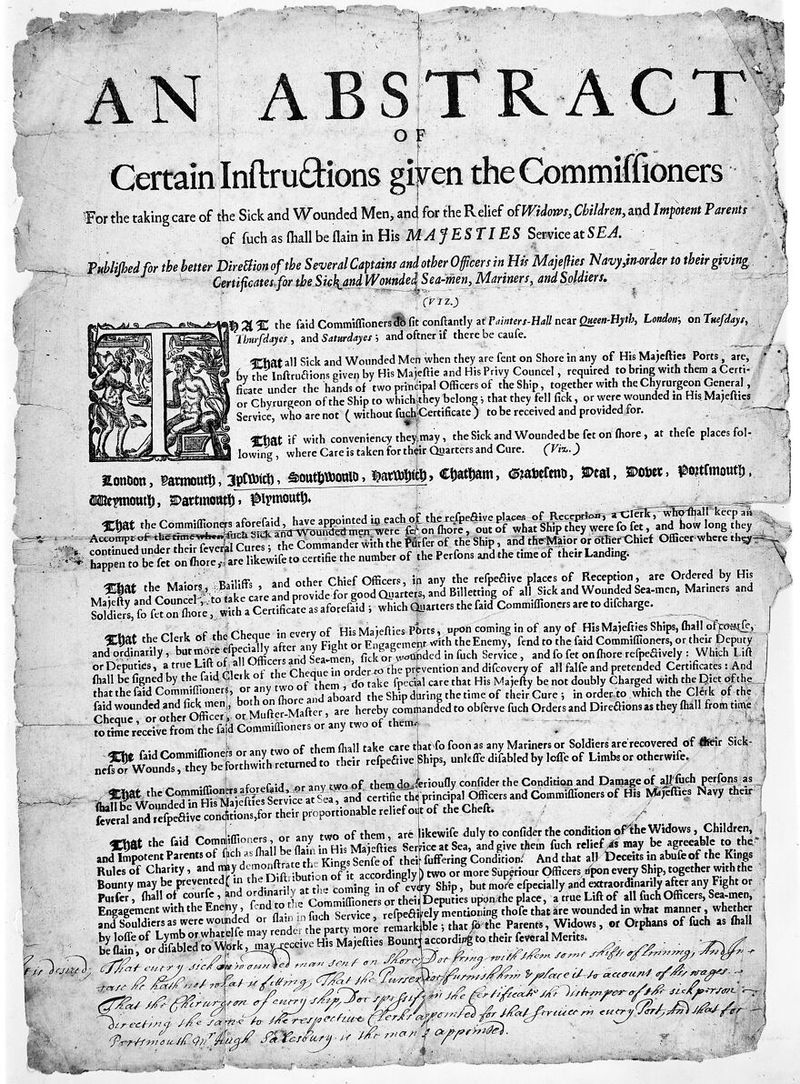 AN ABSTRACT
OF
Certain Inſtructions given the Commiſſioners
For the taking care of the Sick and Wounded Men, and for the Relief of Widows, Children, and Impotent Parents
of ſuch as ſhall be ſlain in His MAJESTIES Service at SEA.
Publiſhed for the better Direction of the Several Captains and other Officers in His Majeſties Navy, in order to their giving
Certificates for the Sick and Wounded Sea-men, Mariners, and Soldiers.
(VIZ.)
THAT the ſaid Commiſſioners do ſit conſtantly at Painters-Hall near Queen-Hyth, London; on Tueſdays,
Thurſdayes, and Saturdayes; and oftner if there be cauſe.
That all Sick and Wounded Men when they are ſent on Shore in any of His Majeſties Ports, are,
by the Inſtructions given by His Majeſtie and His Privy Councel, required to bring with them a Certi-
ficate under the hands of two principal Officers of the Ship, together with the Chyrurgeon General,
or Chyrurgeon of the Ship to which they belong; that they fell ſick, or were wounded in His Majeſties
Service, who are not (without ſuch Certificate) to be received and provided for.
That if with conveniency they may, the Sick and Wounded be ſet on ſhore, at theſe places fol-
lowing, where Care is taken for their Quarters and Cure. (Viz.)
London, Yarmouth, Ipſwich, Southwould, Harwhich, Chatham, Graveſend, Deal, Dover, Portſmouth,
Weymouth, Dartmouth, Plymouth.
That the Commiſſioners aforeſaid, have appointed in each of the reſpective places of Reception, a Clerk, who ſhall keep an
Accompt of the time when ſuch Sick and Wounded men were ſet on ſhore, out of what Ship they were ſo ſet, and how long they
continued under their ſeveral Cures; the Commander with the Purſer of the Ship, and the Maior or other Chief Officer where they
happen to be ſet on ſhore, are likewiſe to certifie the number of the Perſons and the time of their Landing.
That the Maiors, Bailiffs, and other Chief Officers, in any the reſpective places of Reception, are Ordered by His
Majeſty and Councel, to take care and provide for good Quarters, and Billetting of all Sick and Wounded Sea-men, Mariners and
Soldiers, ſo ſet on ſhore, with a Certificate as aforeſaid; which Quarters the ſaid Commiſſioners are to diſcharge.
That the Clerk of the Cheque in every of His Majeſties Ports, upon coming in of any of His Majeſties Ships, ſhall of courſe,
and ordinarily, but more eſpecially after any Fight or Engagement with the Enemy, ſend to the ſaid Commiſſioners, or their Deputy
or Deputies, a true Liſt of all Officers and Sea-men, ſick or wounded in ſuch Service, and ſo ſet on ſhore reſpectively: Which Liſt
ſhall be ſigned by the ſaid Clerk of the Cheque in order to the prevention and diſcovery of all falſe and pretended Certificates: And
that the ſaid Commiſſioners, or any two of them, do take ſpecial care that His Majeſty be not doubly Charged with the Diet of the
ſaid wounded and ſick men, both on ſhore and aboard the Ship during the time of their Cure; in order to which the Clerk of the
Cheque, or other Officer, or Muſter-Maſter, are hereby commanded to obſerve ſuch Orders and Directions as they ſhall from time
to time receive from the ſaid Commiſſioners or any two of them.
The ſaid Commiſſioners or any two of them ſhall take care that ſo ſoon as any Mariners or Soldiers are recovered of their Sick-
neſs or Wounds, they be forthwith returned to their reſpective Ships, unleſſe diſabled by loſſe of Limbs or otherwiſe.
That the Commiſſioners aforeſaid, or any two of them do ſeriouſly conſider the Condition and Damage of all ſuch perſons as
ſhall be Wounded in His Majeſties Service at Sea, and certifie the principal Officers and Commiſſioners of His Majeſties Navy their
ſeveral and reſpective conditions, for their proportionable relief out of the Cheſt.
That the ſaid Commiſſioners, or any two of them, are likewiſe duly to conſider the condition of the Widows, Children,
and Impotent Parents of ſuch as ſhall be ſlain in His Majeſties Service at Sea, and give them ſuch relief as may be agreeable to the
Rules of Charity, and may demonſtrate the Kings Senſe of their ſuffering Condition. And that all Deceits in abuſe of the Kings
Bounty may be prevented (in the Diſtribution of it accordingly) two or more Superiour Officers upon every Ship, together with the
Purſer, ſhall of courſe, and ordinarily at the coming in of every Ship, but more eſpecially and extraordinarily after any Fight or
Engagement with the Enemy, ſend to the Commiſſioners or their Deputies upon the place, a true Liſt of all ſuch Officers, Sea-men,
and Souldiers as were wounded or ſlain in ſuch Service, reſpectively mentioning thoſe that are wounded in what manner, whether
by loſſe of Lymb or whatelſe may render the party more remarkable; that ſo the Parents, Widows, or Orphans of ſuch as ſhall
be ſlain, or diſabled to Work, may receive His Majeſties Bounty according to their ſeveral Merits.
it is desired, That every sick or wounded man sent on Shore, Doe bring with them some shifts of linning, And in
case he hath not what is fitting, That the Purser doe furnish him & place it to account of his wages.
That the Chirurgion of every ship Doe spessify in the Certificate the distemper of the sick person
directing the same to the respective Clerks appointed for that service in every Port, and that for
Portsmouth Mr Hugh Salesbury is the man appointed.